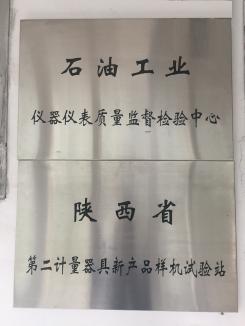 石油工业
仪器仪表质量监督检验中心
陕西省
第二计量器具新产品样机试验站